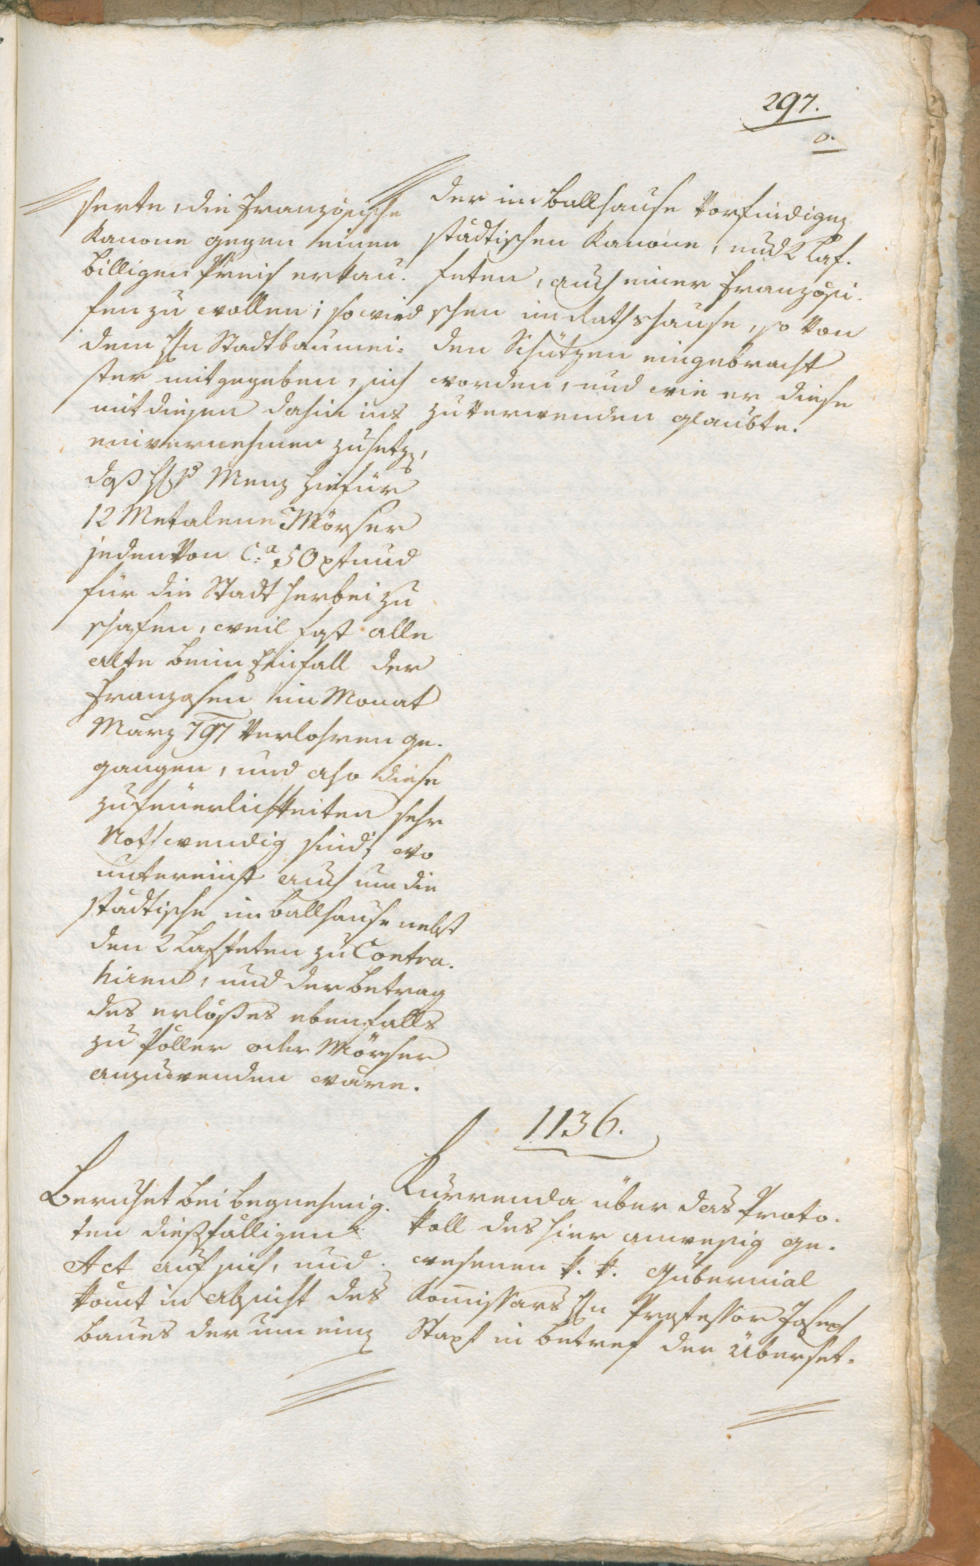 297.
0.
serte, die Französische
Kanone gegen einen
billigen Preis erkau-
fen zu wollen; so wird
dem Hn Stadtbaumei-
ster mitgegeben, sich
mit diesen dahin ins
einvernehmen zusetzen,
daß Menz hiefür
12 Metalene Mörser
jeden von Ca 50 pfund
für die Stadt herbei zu
schafen, weil fast alle
alte beim Einfall der
Franzosen im Monat
März 797 verlohren ge-
gangen, und also diese
zu feuerlichkeiten sehr
Nothwendig sind; wo
untereinst auch um die
städtische im Ballhause nebst
den 2 Laffeten zu Contra-
hiren, und der betrag
des erlößes ebenfalls
zu Poller oder Mörser
anzuwenden wäre.
der im Ballhause vorfindigen
städtischen Kanone, und 2 Laf-
feten, auch einer französi-
schen im Rathshause, so von
den Schützen eingebracht
worden, und wie er diese
zu verwenden glaubte.
1136.
Beruhet bei begnehmig-
ten dießfälligen
Act auf sich, und
komt in Absicht des
baues der um einz
Kurrenda über das Proto-
koll des hier anwesig ge-
wesenen k. k. Gubernial
Kommissars Hn Professor Joseph
Stapf in betref der Überset-